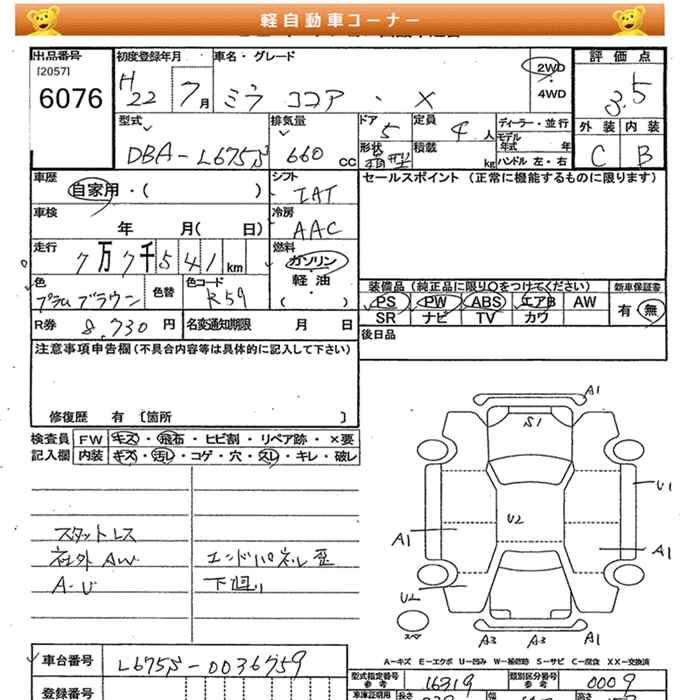 軽自動車コーナー
出品番号 初度登録年月 車名・グレード 評価点
[2057]
6076 H22 7月 ミラ ココア・X 2WD・4WD 3.5
型式 排気量 ドア 定員 ディーラー・並行 外装 内装
DBA-L675S 660 CC 5 4人 モデル年式 年 C B
形状 箱型 積載 kg ハンドル 左・右
車歴 自家用・( ) シフト IAT セールスポイント(正常に機能するものに限ります)
車検 年 月( 日) 冷房 AAC
走行 7万7千541km 燃料 ガソリン・軽油・( )
色 プラムブラウン 色替 色コード R59
装備品(純正品に限り○をつけてください) 新車保証書
PS PW ABS エアB AW 有 無
SR ナビ TV カワ
R券 8,730円 名変通知期限 月 日 後日品
注意事項申告欄(不具合内容等は具体的に記入して下さい)
修復歴 有 〔箇所 〕
検査員 FW キズ・飛石・ヒビ割・リペア跡・×要
記入欄 内装 キズ・汚レ・コゲ・穴・スレ・キレ・破レ
スタットレス
社外 AW エンドパネル歪
A・U 下廻り
A1
S1
U1
U2
A1 A1
U2
スペ A3 A3 A1
A-キズ E-エクボ U-凹み W-補修跡 S-サビ C-腐食 XX-交換済
車台番号 L675S-0036759
型式指定番号 参考 16319 類別区分番号 参考 0009
登録番号 車庫証明用 長さ 幅 高さ